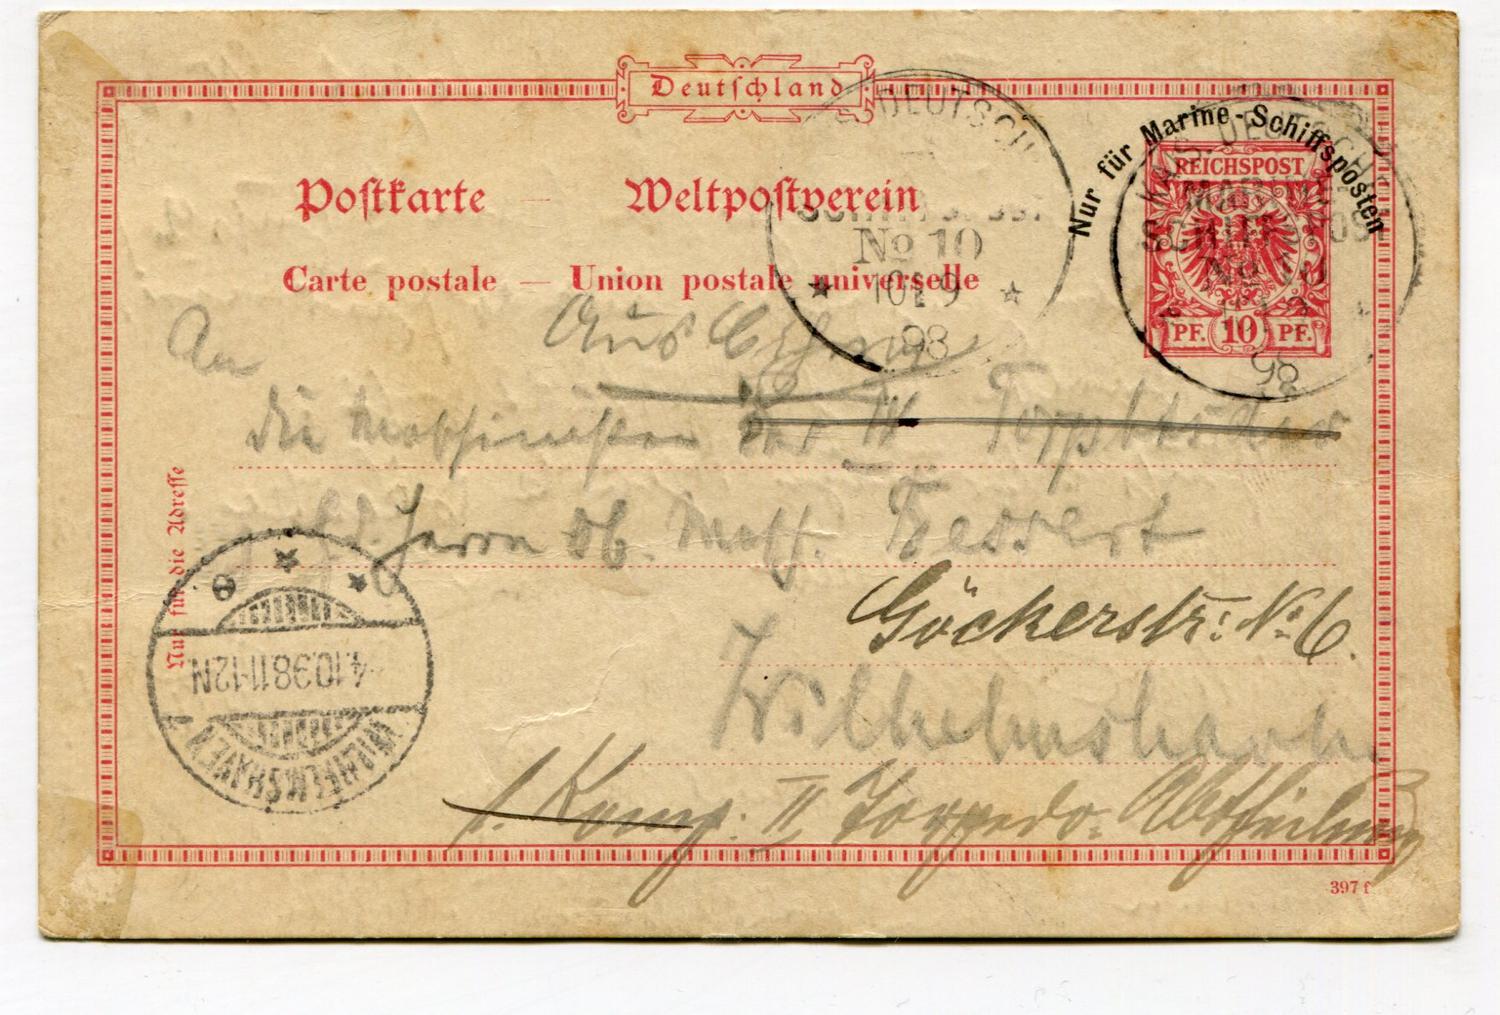 Deutschland
Postkarte — Weltpostverein
Carte postale — Union postale universelle
Nur für Marine-Schiffsposten
REICHSPOST
PF. 10 PF.
KAIS. DEUTSCHE
MARINE
SCHIFFSPOST
No 10
98
DEUTSCHE
SCHIFFSPOST
No 10
* 10 9 *
98
Aus
An
die Maschinisten der IV
Herrn Ob. Masch.
Göckerstr: No 6.
Wilhelmshaven
1. Komp. II Torpedo-Abtheilung
Nur für die Adresse
WILHELMSHAVEN
4.10.98.11-12N
397 f